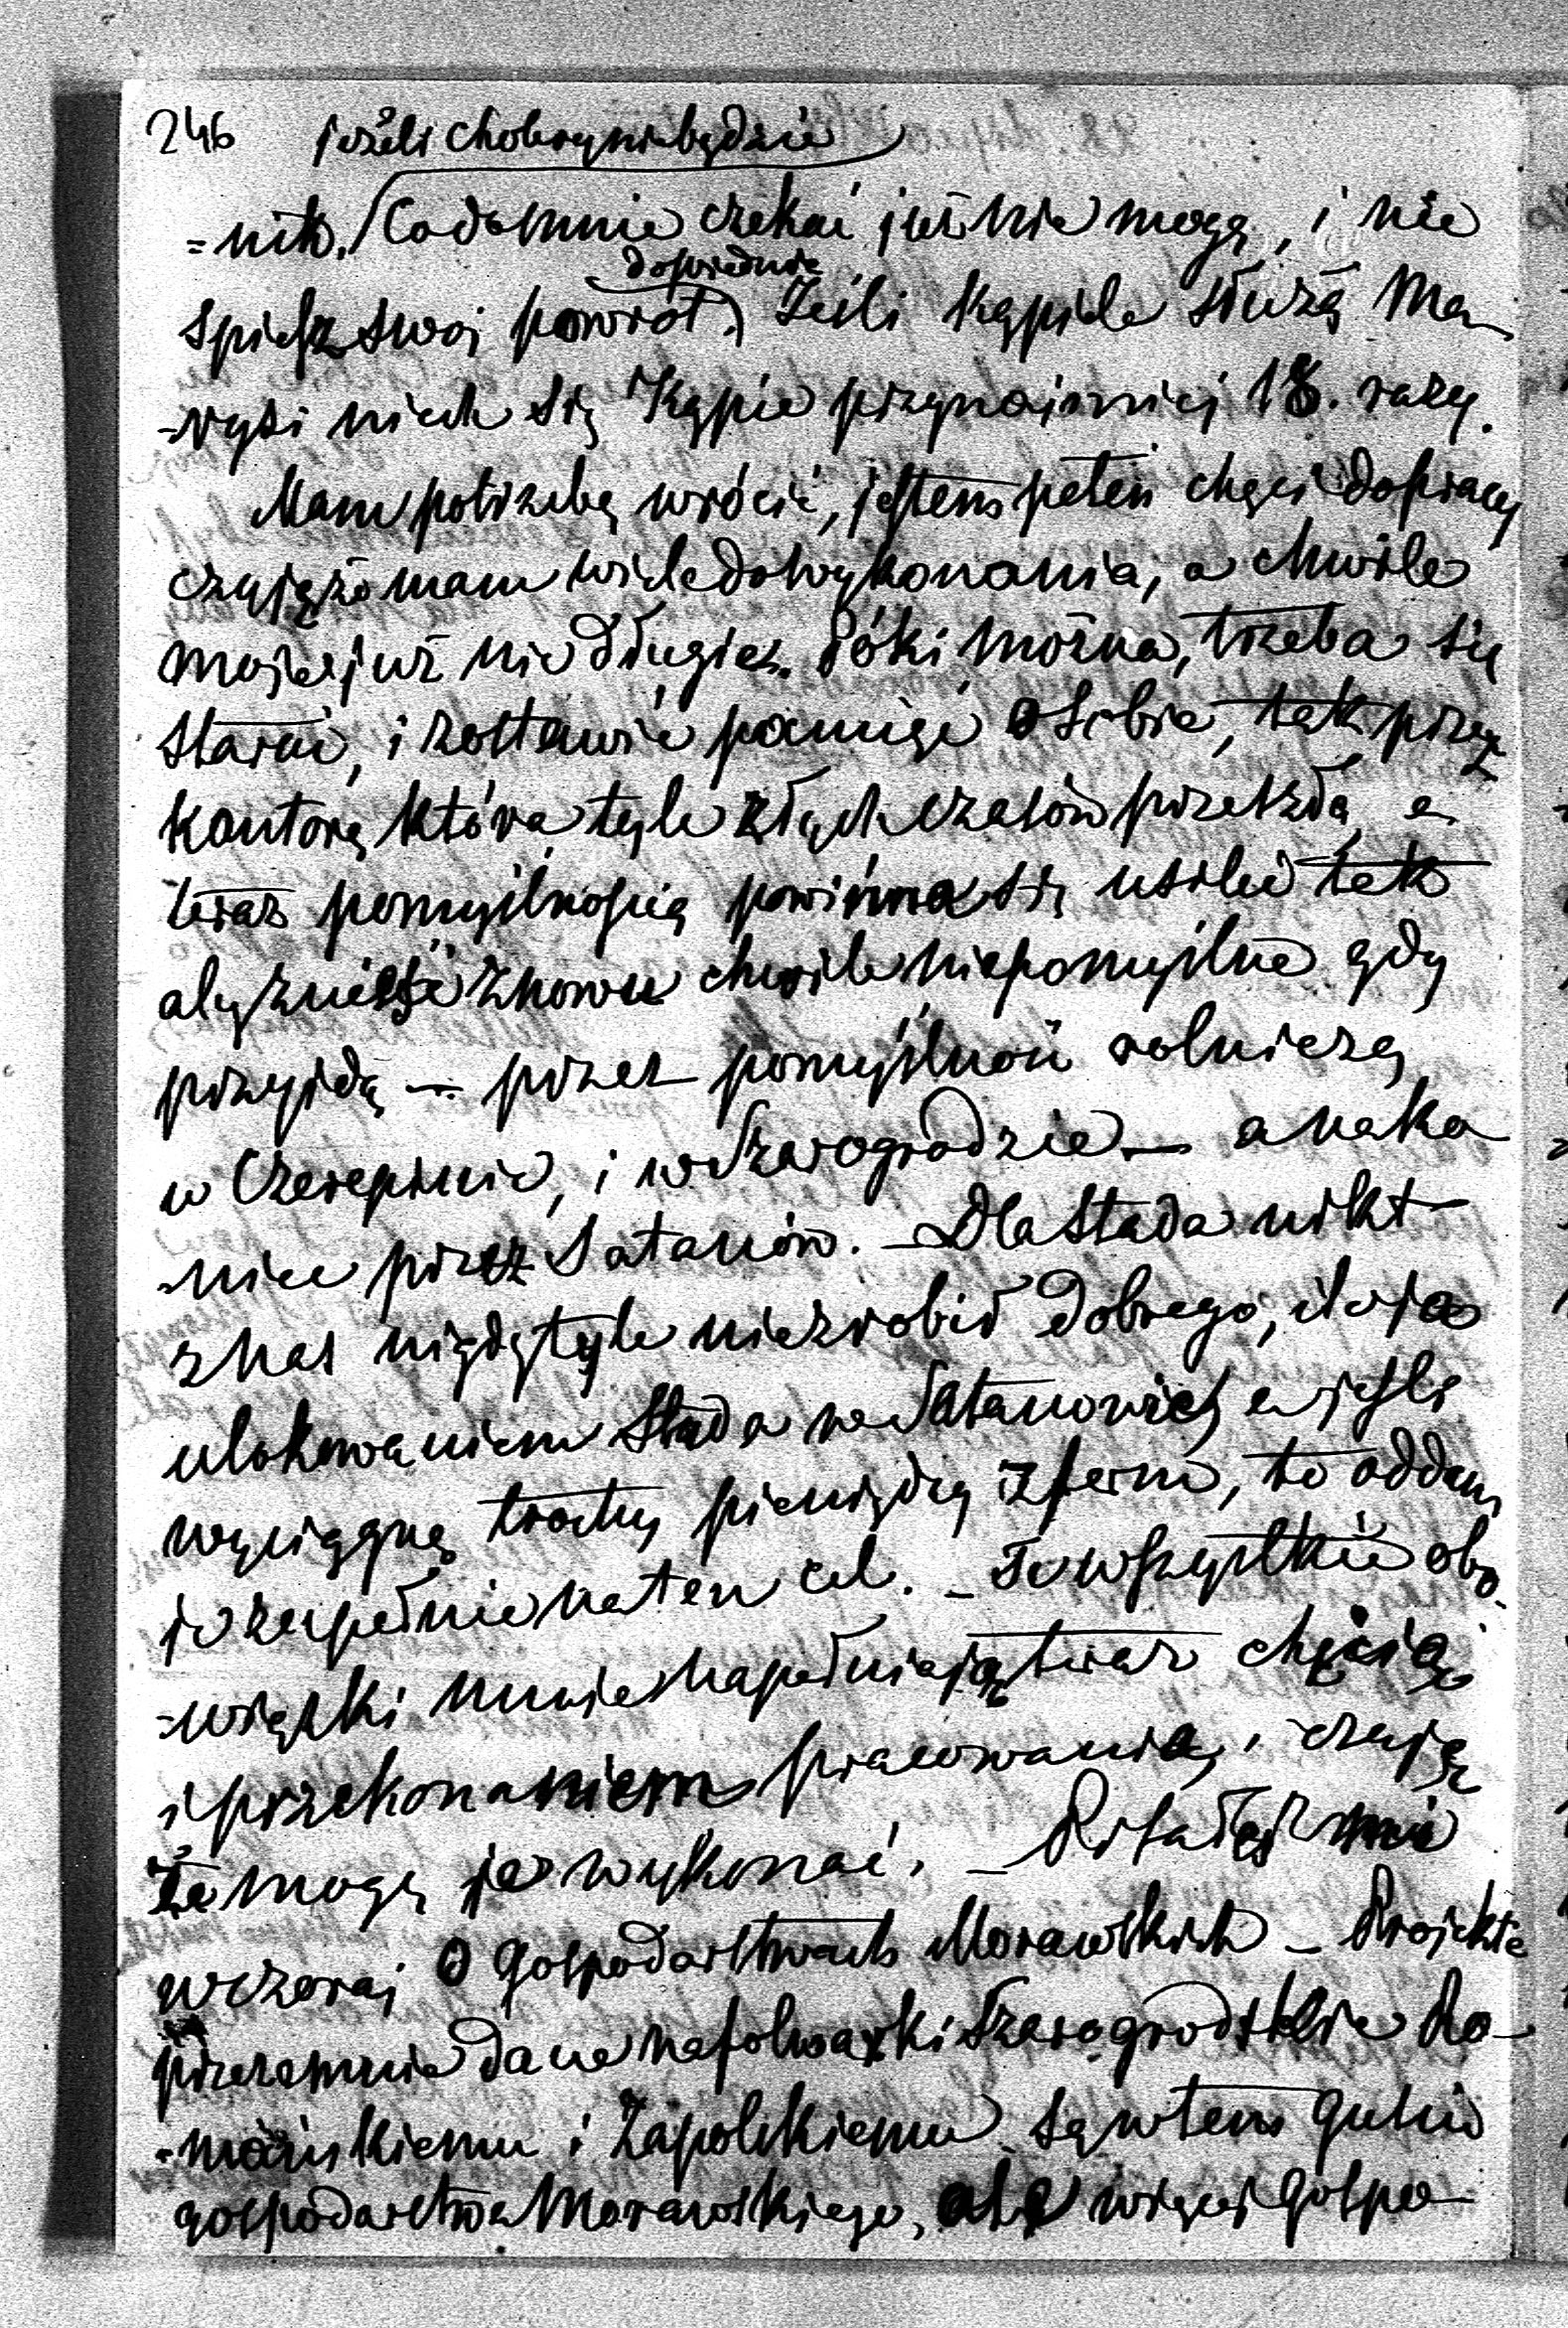 246 jeżeli chobry niebędzie
=nik. Co do mnie czekać już nie mogę, i nie
spieszę swoj powrót. dopiednie Jeśli kąpiele służą Ma-
-rysi niech się Kąpie przynajmniej 18. razy.
Mam potrzebę wrócić, jestem pełen chęci do pracy
czuję że mam wiele do wykonania, a chwile
moje już nie długie. Póki można, trzeba się
starać, i zostawić pamięć o sobie, tak przez
kantorę która tyle złych czasów przeszła, a
teraz pomyślnością powinna się usilić tak
aby znieść znowu chwile niepomyślne gdy
przyjdą — przez pomyślność rolniczą
w Czerepinie, i w Szarogrodzie — a nako-
-niec przez Satanów. — Dla Stada nikt
z nas nigdy tyle niezrobił dobrego, ile ja
ulokowaniem Stada w Satanowie, a jeśli
wyciągnę trochę pieniędzy z ferm, to oddam
je zupełnie na ten cel. — Te wszystkie obo-
-wiązki mnie napełniają teraz chęcią
i przekonaniem pracowania, i czuję
że mogę je wykonać. — Pisałeś mi
wczoraj o Gospodarstwach Morawskich — Projekta
przezemnie dane na folwarki Szarogrodzkie Ro-
-mańskiemu i Zapolskiemu są w tem guście
gospodarstwa Morawskiego, ale więcej Gospo-